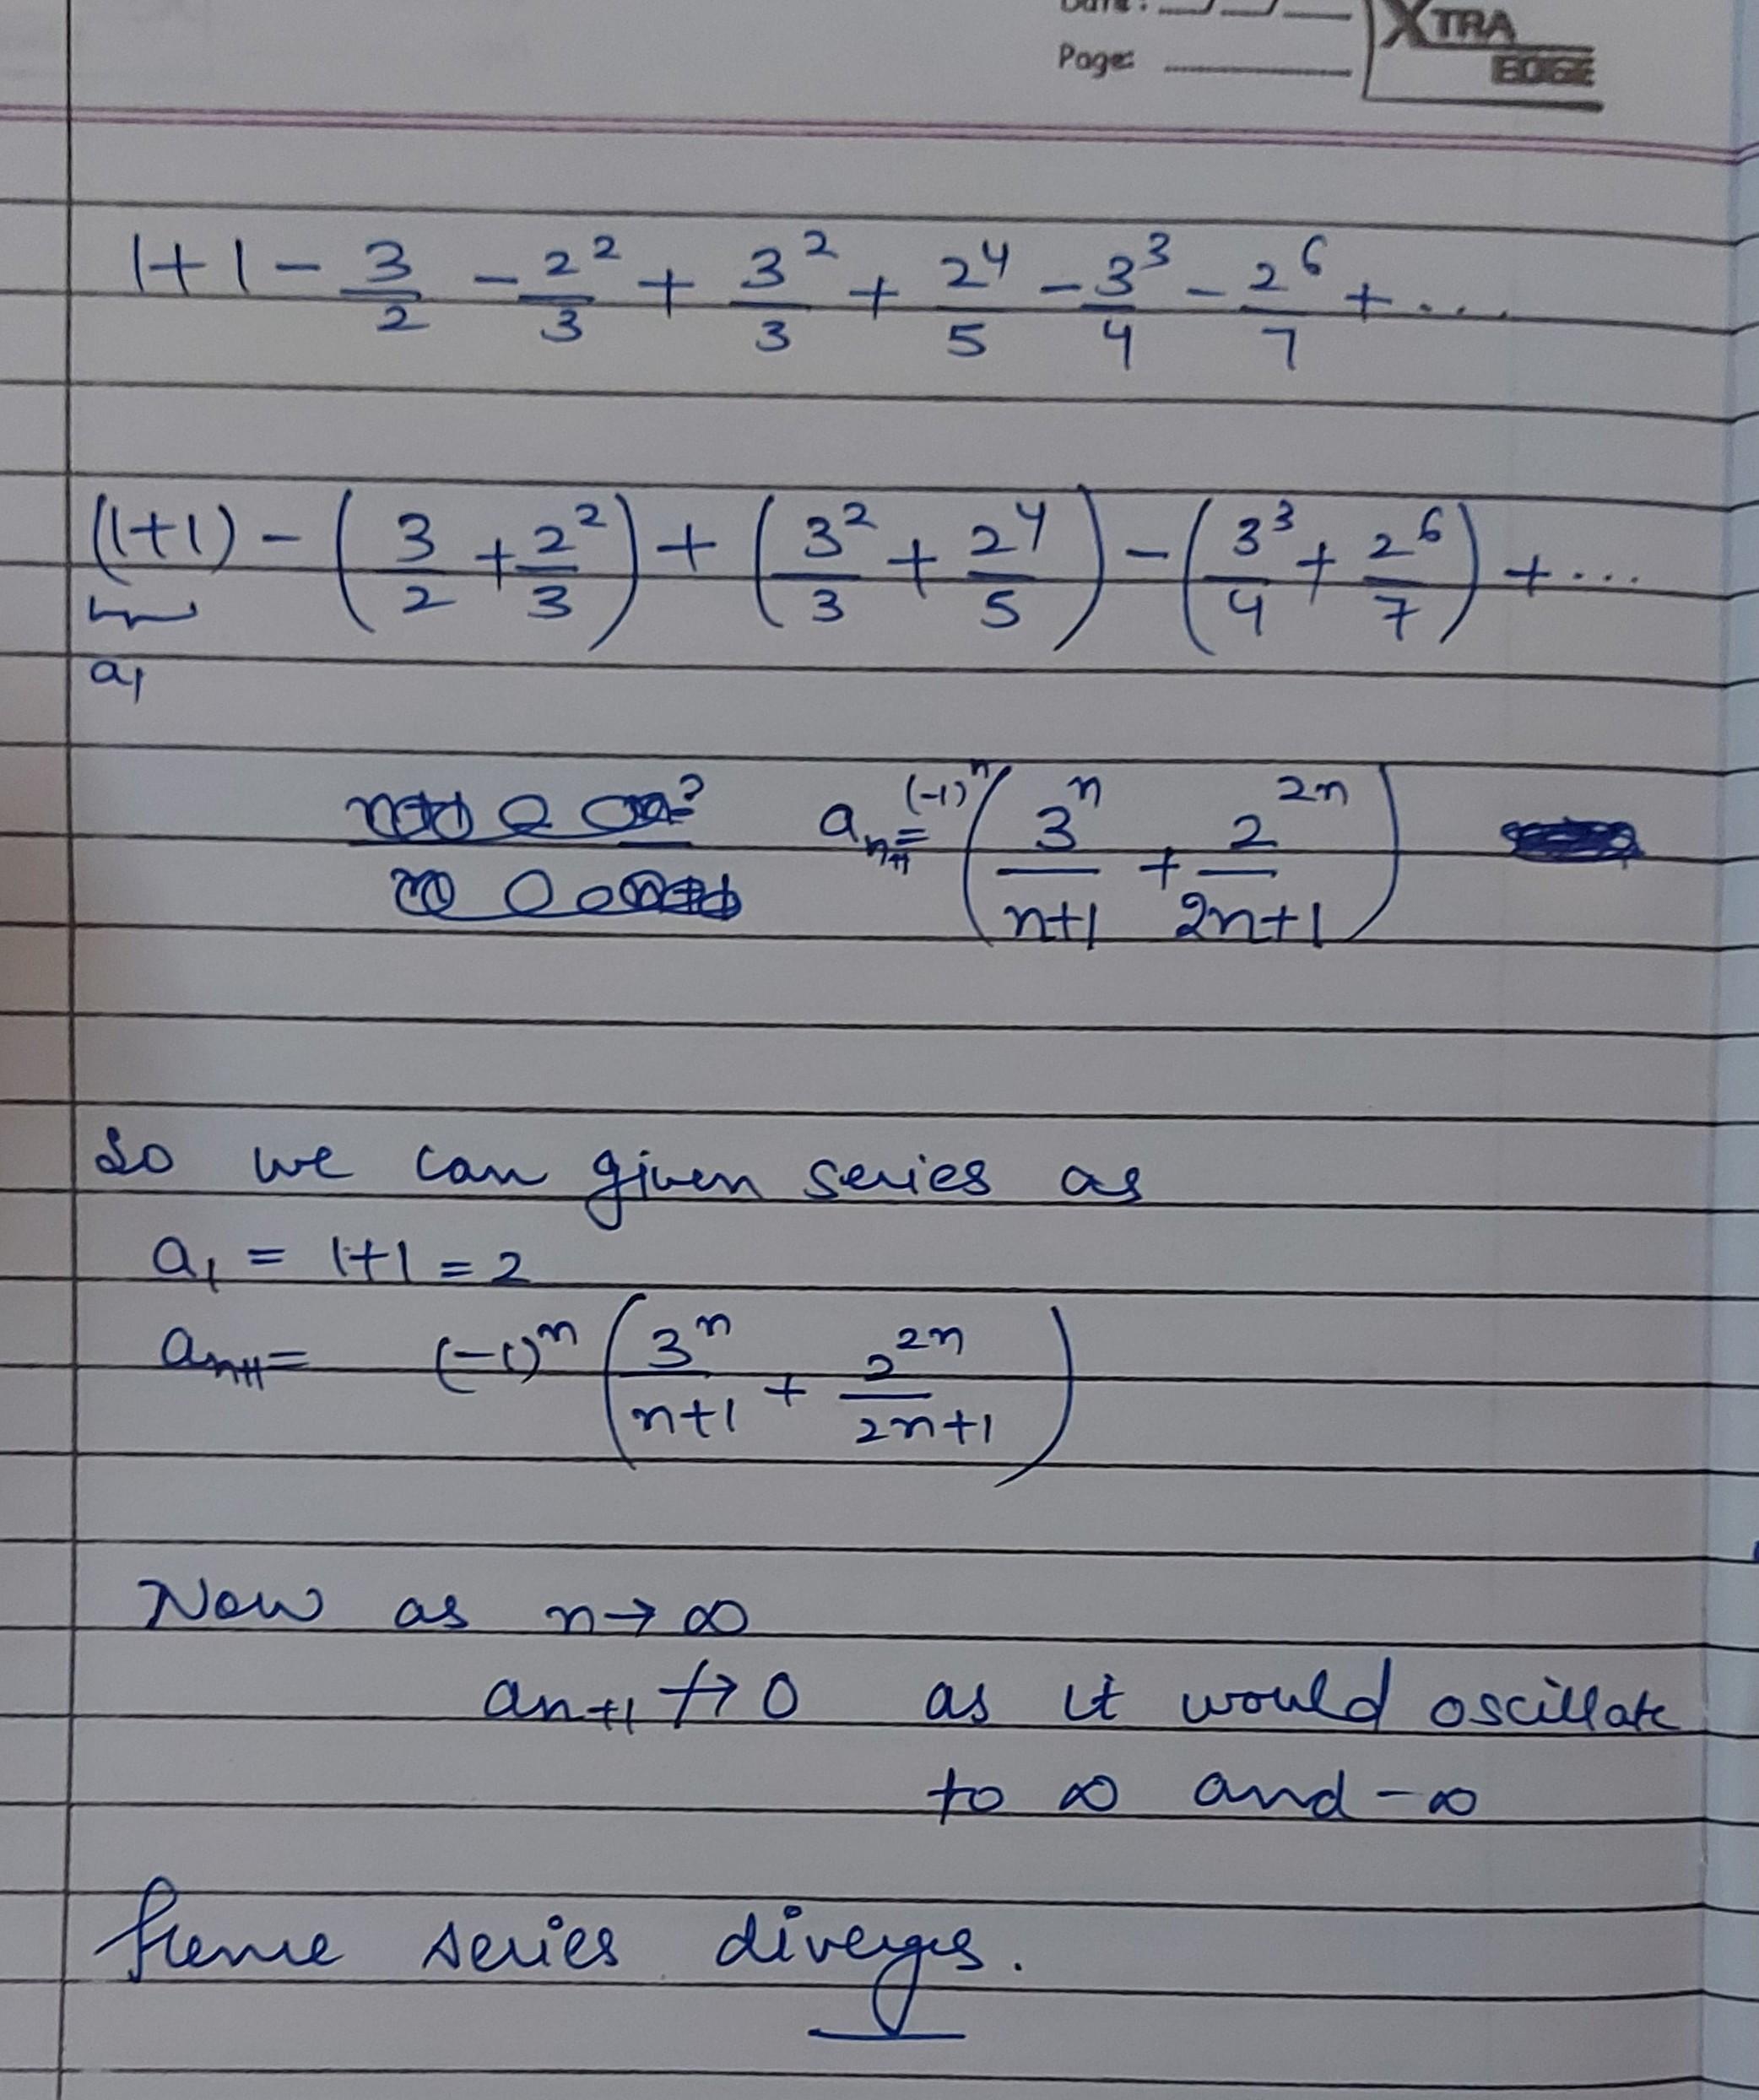 Date: __/__/__
Page:
XTRA
EDGE
1+1 - 3/2 - 2²/3 + 3²/3 + 2⁴/5 - 3³/4 - 2⁶/7 + ...
(1+1) - (3/2 + 2²/3) + (3²/3 + 2⁴/5) - (3³/4 + 2⁶/7) + ...
a₁
aₙ₊₁ = (-1)ⁿ (3ⁿ/n+1 + 2²ⁿ/2n+1)
So we can given series as
a₁ = 1+1 = 2
aₙ₊₁ = (-1)ⁿ (3ⁿ/n+1 + 2²ⁿ/2n+1)
Now as n→∞
aₙ₊₁ ↛ 0 as it would oscillate
to ∞ and -∞
Hence series diverges.